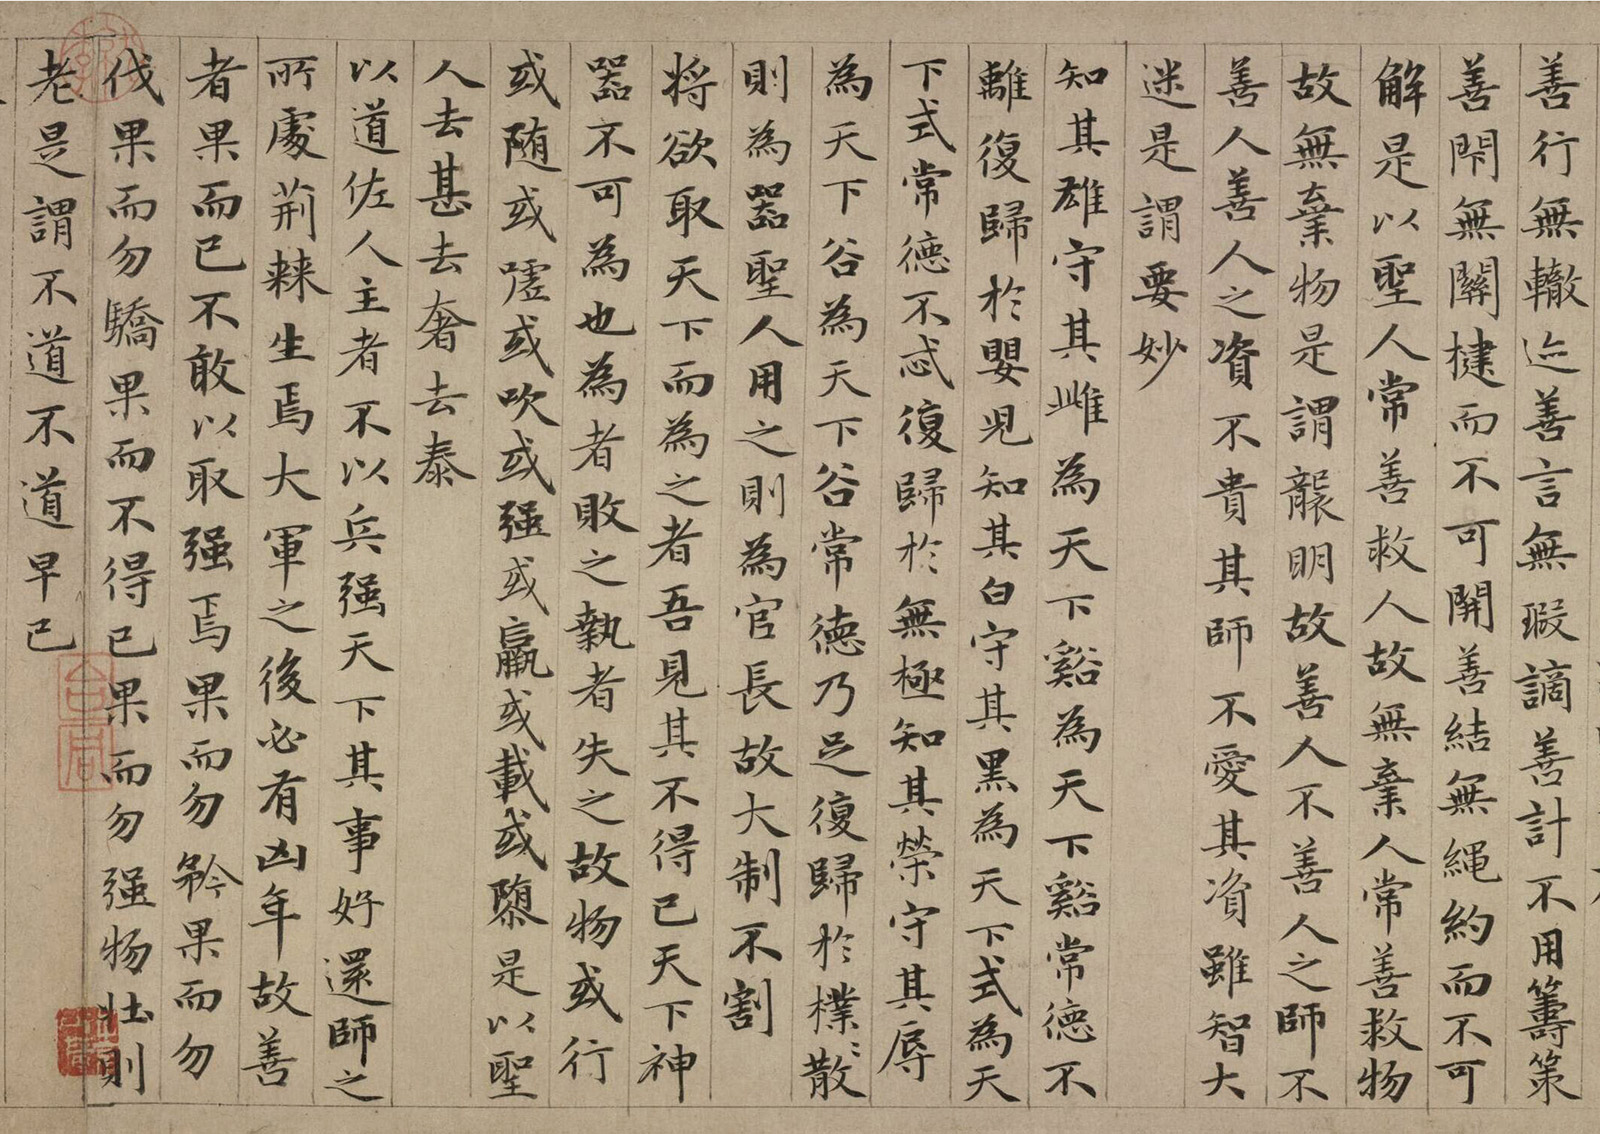 善行無轍迹善言無瑕謫善計不用籌策
善閇無關揵而不可開善結無繩約而不可
解是以聖人常善救人故無棄人常善救物
故無棄物是謂襲明故善人不善人之師不
善人善人之資不貴其師不愛其資雖智大
迷是謂要妙
知其雄守其雌為天下谿為天下谿常德不
離復歸於嬰兒知其白守其黑為天下式為天
下式常德不忒復歸於無極知其榮守其辱
為天下谷為天下谷常德乃足復歸於樸〻散
則為器聖人用之則為官長故大制不割
將欲取天下而為之者吾見其不得已天下神
器不可為也為者敗之執者失之故物或行
或随或嘘或吹或强或羸或載或隳是以聖
人去甚去奢去泰
以道佐人主者不以兵强天下其事好還師之
所處荊棘生焉大軍之後必有凶年故善
者果而已不敢以取强焉果而勿矜果而勿
伐果而勿驕果而不得已果而勿强物壯則
老是謂不道不道早已